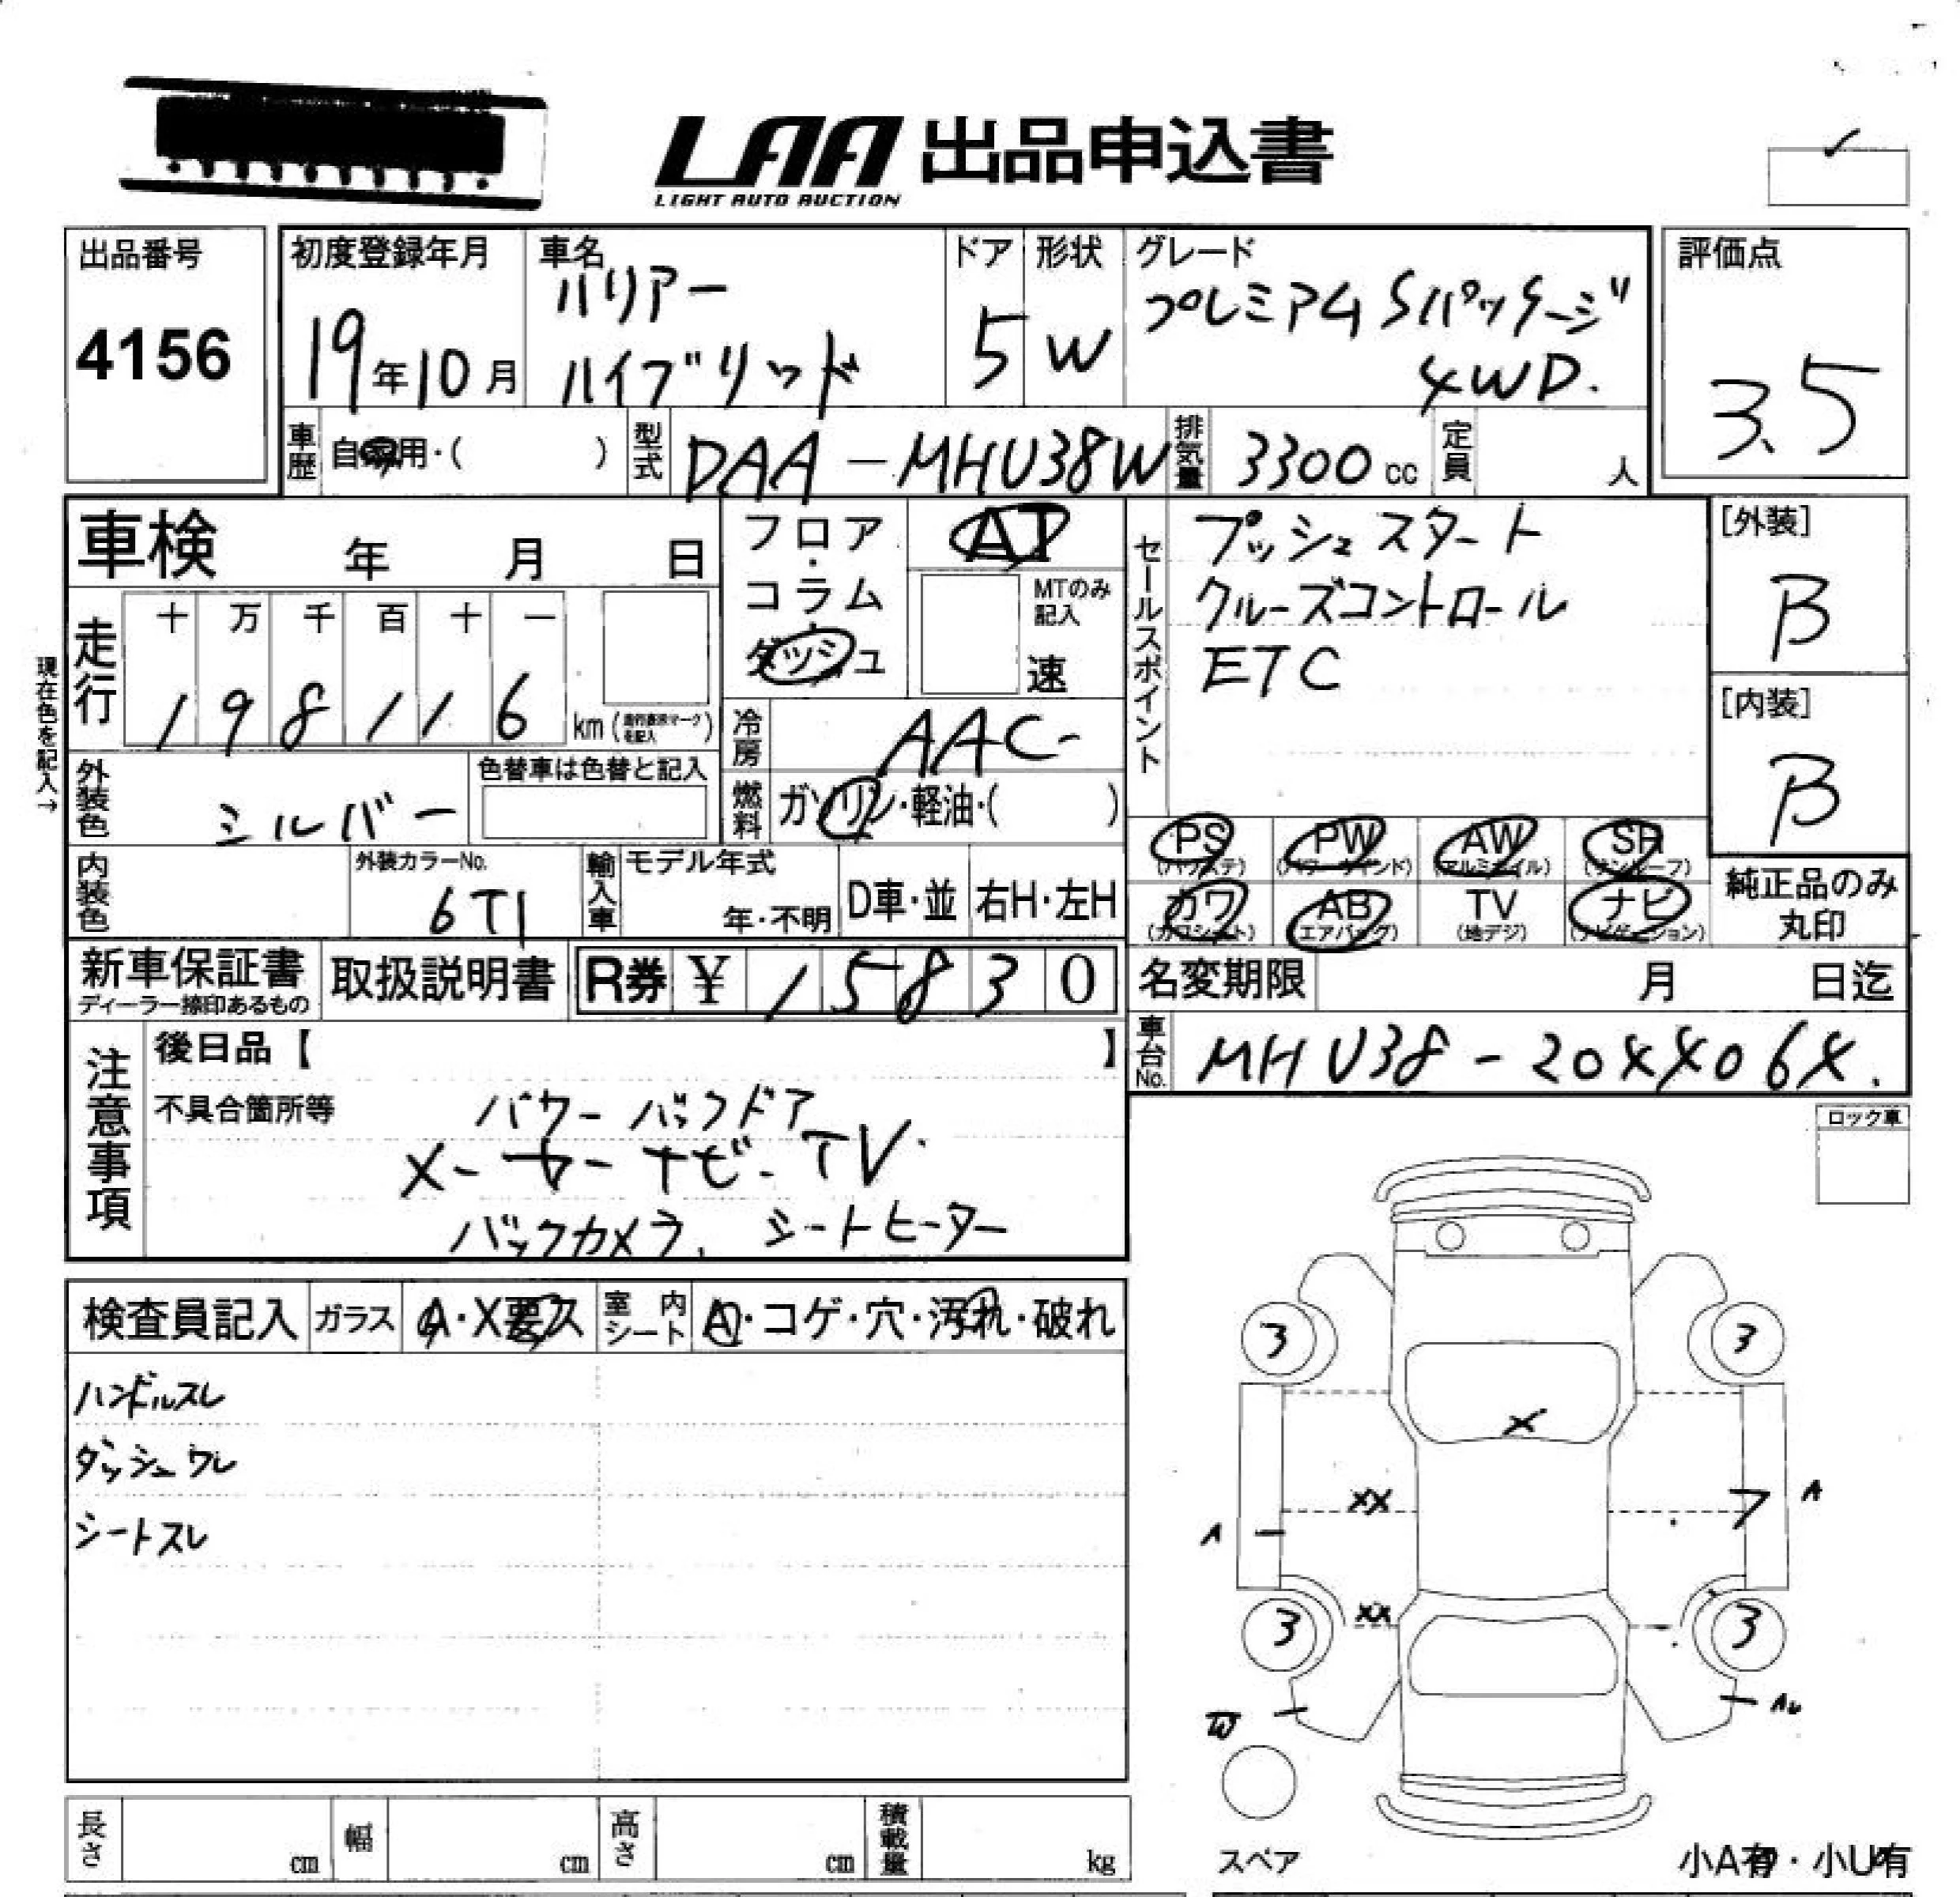 LAA 出品申込書
LIGHT AUTO AUCTION
出品番号
4156
初度登録年月
19年10月
車名
ハリアー
ハイブリッド
ドア
5
形状
W
グレード
プレミアム Sパッケージ
4WD.
評価点
3.5
車歴 自家用・( )
型式 DAA-MHU38W
排気量 3300 cc
定員 人
車検 年 月 日
フロア・コラム・ダッシュ
AT
MTのみ記入
速
セールスポイント
プッシュスタート
クルーズコントロール
ETC
[外装]
B
[内装]
B
現在色を記入→
走行
十 万 千 百 十 一
1 9 8 1 1 6 km
冷房 AAC-
外装色 シルバー
色替車は色替と記入
燃料 ガソリン・軽油・( )
PS (パワステ) PW (パワーウインド) AW (アルミホイル) SR (サンルーフ)
カワ (カワシート) AB (エアバッグ) TV (地デジ) ナビ (ナビゲーション)
純正品のみ
丸印
内装色
外装カラーNo.
6T1
輸入車
モデル年式
年・不明
D車・並
右H・左H
新車保証書
ディーラー捺印あるもの
取扱説明書
R券 ¥ 1 5 8 3 0
名変期限 月 日迄
車台No. MHU38-20XX06X.
注意事項
後日品【 】
不具合箇所等
パワーバックドア
メーカーナビ-TV.
バックカメラ. シートヒーター
ロック車
検査員記入
ガラス A・X要ス
室内シート A・コゲ・穴・汚れ・破れ
ハンドルスレ
ダッシュワレ
シートスレ
3 3
X
XX
7 A
A
XX
3 3
W
AU
スペア
小A有・小U有
長さ cm
幅 cm
高さ cm
積載量 kg